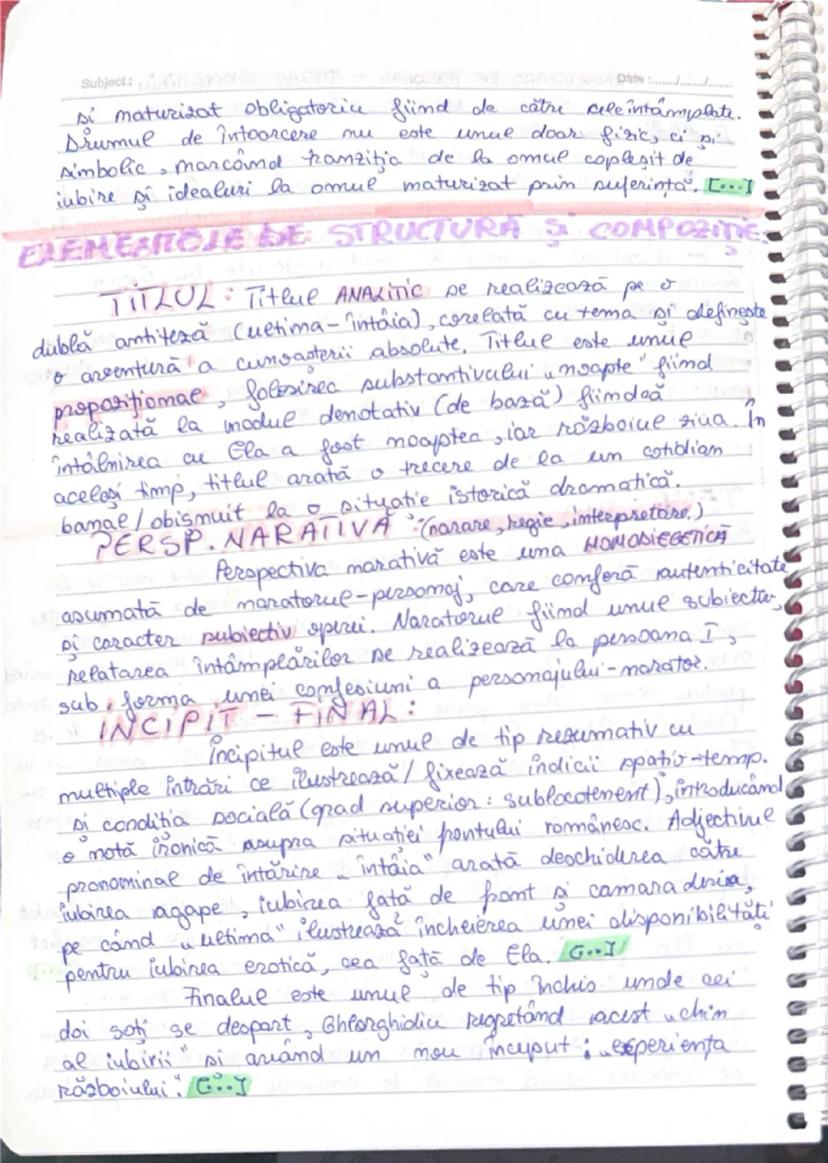 Subject: Date :....../....../......
și maturizat obligatoriu fiind de către cele întâmplate.
Drumul de întoarcere nu este unul doar fizic, ci și
simbolic, marcând tranziția de la omul copleșit de
iubire și idealuri la omul maturizat prin suferință. [...]
ELEMENTELE DE STRUCTURĂ ȘI COMPOZIȚIE:
TITLUL: Titlul ANALITIC se realizează pe o
dublă antiteză (ultima-întâia), corelată cu tema și definește
o aventură a cunoașterii absolute. Titlul este unul
propozițional, folosirea substantivului „noapte" fiind
realizată la modul denotativ (de bază) fiindcă
întâlnirea cu Ela a fost noaptea, iar războiul ziua. În
același timp, titlul arată o trecere de la un cotidian
banal/obișnuit la o situație istorică dramatică.
PERSP. NARATIVĂ : (narare, regie, interpretare.)
Perspectiva narativă este una HOMODIEGETICĂ
asumată de naratorul-personaj, care conferă autenticitate
și caracter subiectiv operei. Naratorul fiind unul subiectiv,
relatarea întâmplărilor se realizează la persoana I,
sub forma unei confesiuni a personajului-narator.
INCIPIT - FINAL:
Incipitul este unul de tip rezumativ cu
multiple intrări ce ilustrează/fixează indicii spațio-temp.
și condiția socială (grad superior: sublocotenent), introducând
o notă ironică asupra situației frontului românesc. Adjectivul
pronominal de întărire „întâia" arată deschiderea către
iubirea agape, iubirea față de front și camaraderia,
pe când „ultima" ilustrează încheierea unei disponibilități
pentru iubirea erotică, cea față de Ela. [...]
Finalul este unul de tip închis unde cei
doi soți se despart, Gheorghidiu regretând acest „chin
al iubirii" și având un nou început: „experiența
războiului". [...]